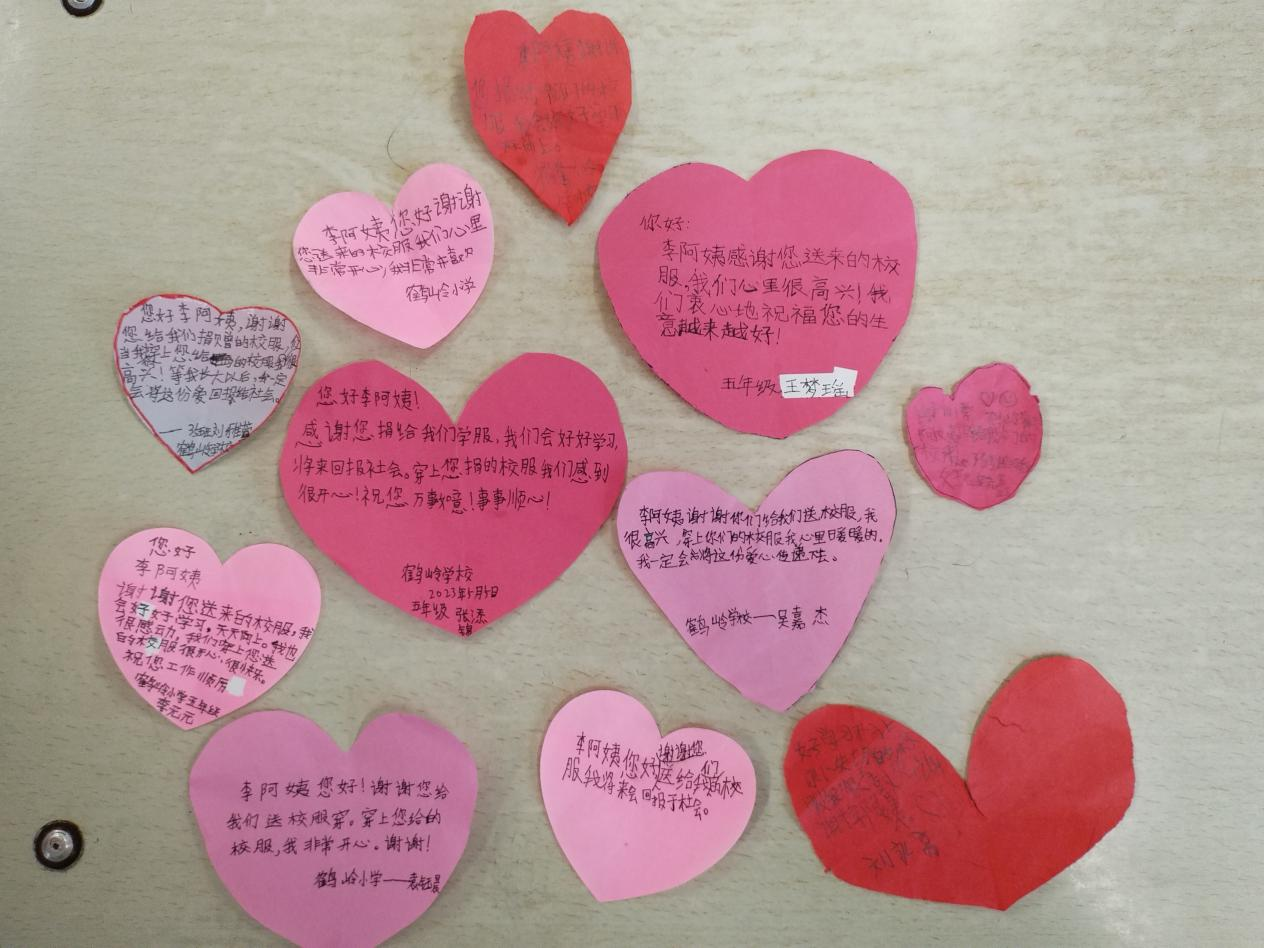 李阿姨谢谢
您捐给我们的校
李阿姨您好谢谢
您送来的校服我们心里
非常开心,我非常喜欢
鹤岭小学
你好:
李阿姨感谢您送来的校
服,我们心里很高兴!我
们衷心地祝福您的生
意越来越好!
五年级 王梦瑶
您好李阿姨,谢谢
您给我们捐赠的校服,
当我穿上您给的校服我很
高兴!等我长大以后,一定
会将这份爱回报给社会。
鹤岭学校
您好李阿姨!
感谢您捐给我们学服,我们会好好学习,
将来回报社会。穿上您捐的校服我们感到
很开心!祝您万事如意!事事顺心!
鹤岭学校
2023年5月5日
五年级 张添
锦
李阿姨谢谢你们给我们送校服,我
很高兴,穿上你们的校服我心里暖暖的。
我一定会将这份爱心传递下去。
鹤岭学校——吴嘉杰
您好
李阿姨
谢谢您送来的校服,我
会好好学习。天天向上。我也
很感动,我们穿上您送
的校服很开心、很快乐。
祝您工作顺历
鹤岭小学五年级
李元元
李阿姨您好!谢谢您给
我们送校服穿。穿上您给的
校服,我非常开心。谢谢!
鹤岭小学——袁钰晨
李阿姨您好谢谢您
送给我们的校
服,我将来会回报于社会。